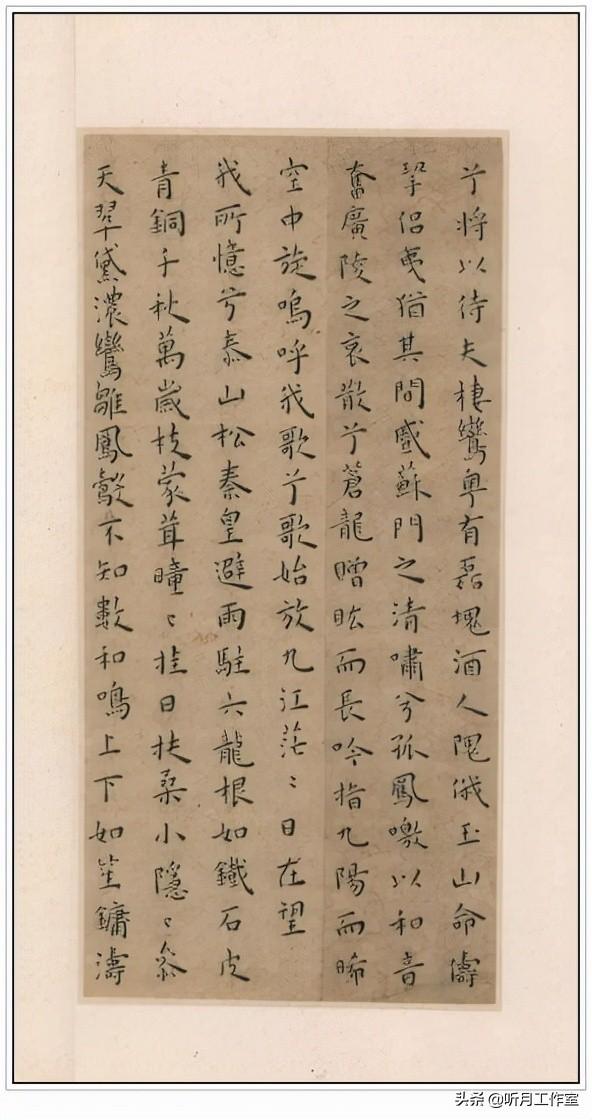 兮将以待夫棲鸞粤有磊塊酒人隗俄玉山命儔
挈侣夷猶其間感蘇門之清嘯兮孤鳳噭以和音
奮廣陵之哀散兮蒼龍瞪眩而長吟指九陽而晞
空中旋嗚呼我歌兮歌始放九江茫〻日在望
我所憶兮泰山松秦皇避雨駐六龍根如鐵石皮
青銅千秋萬歲枝蒙茸曈〻挂日扶桑小隱〻參
天翠黛濃鸞雛鳳鷇不知數和鳴上下如笙鏞濤
头条 @听月工作室